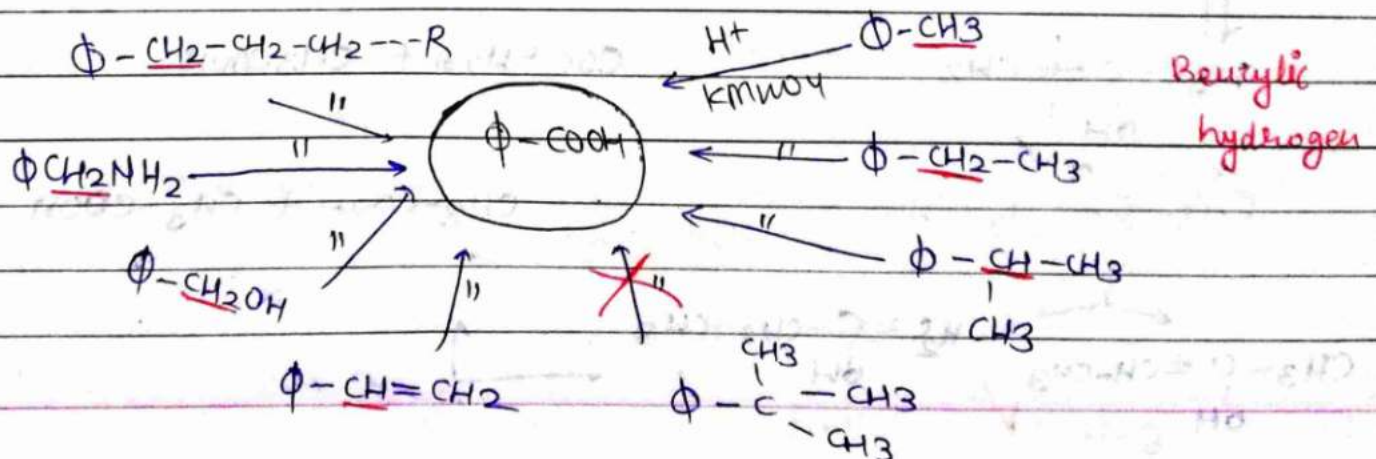 Φ-CH2-CH2-CH2---R
H+
KMnO4
Φ-CH3
Benzylic
hydrogen
"
Φ-COOH
ΦCH2NH2
"
"
Φ-CH2-CH3
"
"
Φ-CH2OH
Φ-CH-CH3
CH3
"
"
Φ-CH=CH2
CH3
Φ-C-CH3
CH3